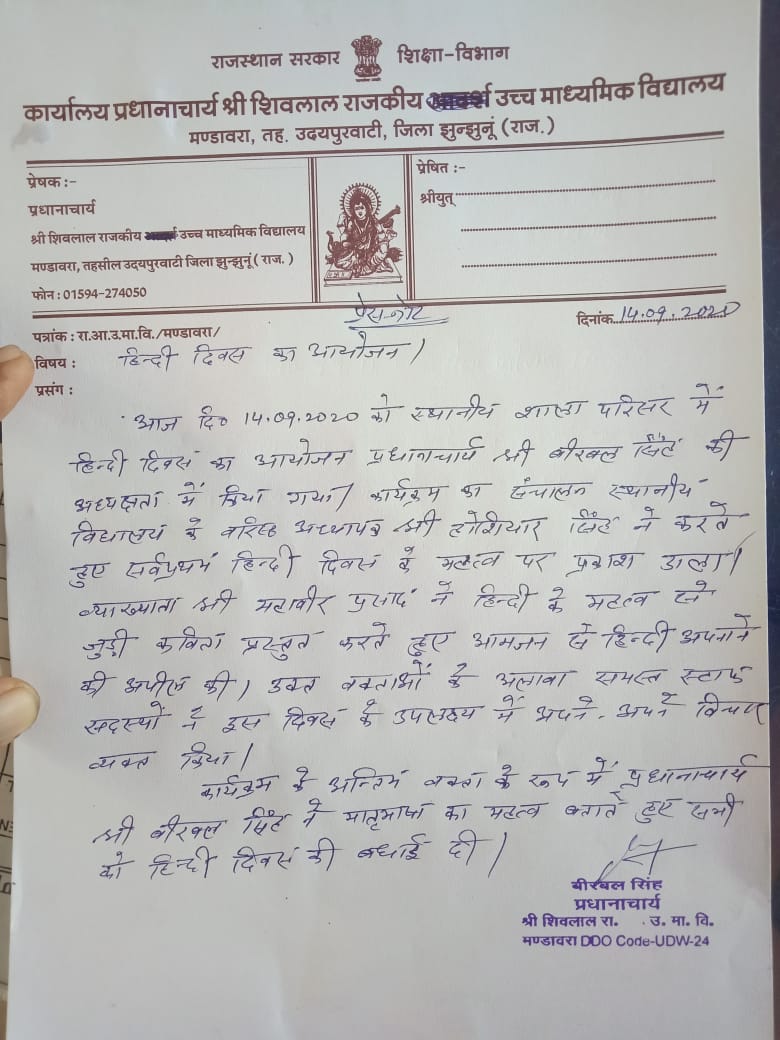 राजस्थान सरकार शिक्षा-विभाग
कार्यालय प्रधानाचार्य श्री शिवलाल राजकीय आदर्श उच्च माध्यमिक विद्यालय
मण्डावरा, तह. उदयपुरवाटी, जिला झुन्झुनूं (राज.)
प्रेषक :-
प्रधानाचार्य
श्री शिवलाल राजकीय आदर्श उच्च माध्यमिक विद्यालय
मण्डावरा, तहसील उदयपुरवाटी जिला झुन्झुनूं ( राज. )
फोन : 01594-274050
प्रेषित :-
श्रीयुत्
प्रेस-नोट
पत्रांक : रा.आ.उ.मा.वि./मण्डावरा/
दिनांक 14.09.2020
विषय : हिन्दी दिवस का आयोजन।
प्रसंग :
आज दि० 14.09.2020 को स्थानीय शाला परिसर में
हिन्दी दिवस का आयोजन प्रधानाचार्य श्री बीरबल सिंह की
अध्यक्षता में किया गया। कार्यक्रम का संचालन स्थानीय
विद्यालय के वरिष्ठ अध्यापक श्री होशियार सिंह ने करते
हुए सर्वप्रथम हिन्दी दिवस के महत्व पर प्रकाश डाला।
व्याख्याता श्री महावीर प्रसाद ने हिन्दी के महत्व से
जुड़ी कविता प्रस्तुत करते हुए आमजन से हिन्दी अपनाने
की अपील की। उक्त वक्ताओं के अलावा समस्त स्टाफ
सदस्यों ने इस दिवस के उपलक्ष्य में अपने-अपने विचार
व्यक्त किया।
कार्यक्रम के अन्तिम वक्ता के रूप में प्रधानाचार्य
श्री बीरबल सिंह ने मातृभाषा का महत्व बताते हुए सभी
को हिन्दी दिवस की बधाई दी।
बीरबल सिंह
प्रधानाचार्य
श्री शिवलाल रा. . उ. मा. वि.
मण्डावरा DDO Code-UDW-24